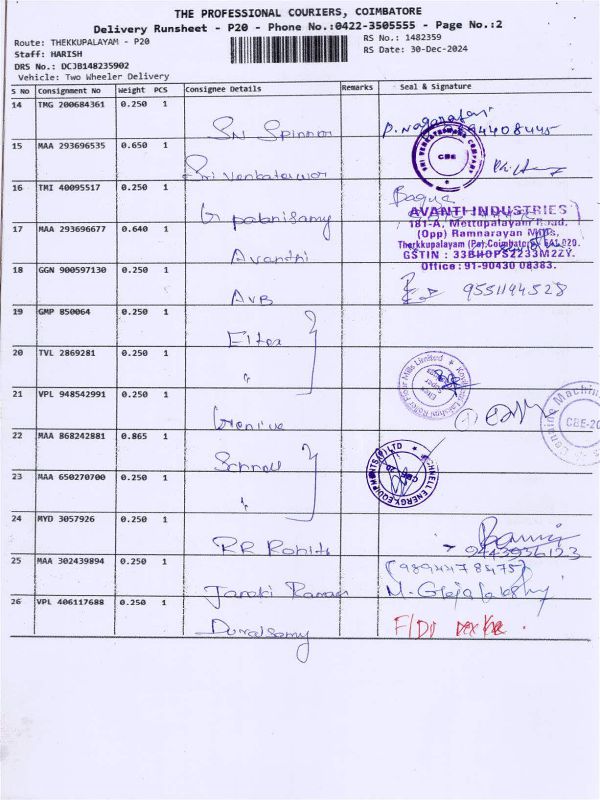 THE PROFESSIONAL COURIERS, COIMBATORE
Delivery Runsheet - P20 - Phone No.:0422-3505555 - Page No.:2
Route: THEKKUPALAYAM - P20
RS No.: 1482359
Staff: HARISH
RS Date: 30-Dec-2024
DRS No.: DCJB148235902
Vehicle: Two Wheeler Delivery
S No Consignment No Weight PCS Consignee Details Remarks Seal & Signature
14 TMG 200684361 0.250 1
SN Spinner
15 MAA 293696535 0.650 1
Sri Venkateswar
CBE
16 TMI 40095517 0.250 1
G palanisamy
AVANTI INDUSTRIES
181-A, Mettupalayam Road,
17 MAA 293696677 0.640 1
(Opp) Ramnarayan Mills,
Avanthi
GSTIN : 33BHOPS2233M2ZY.
Office : 91-90430 08383.
18 GGN 900597130 0.250 1
AVB
9551194528
19 GMP 850064 0.250 1
Eltex
20 TVL 2869281 0.250 1
"
21 VPL 948542991 0.250 1
CBE-20
22 MAA 868242881 0.865 1
Schnell
SCHNELL ENERGY EQUIPMENTS (P) LTD
23 MAA 650270700 0.250 1
"
24 MYD 3057926 0.250 1
RR Rohith
9443956123
25 MAA 302439894 0.250 1
(9894478475)
Janaki Raman
26 VPL 406117688 0.250 1
Duraisamy